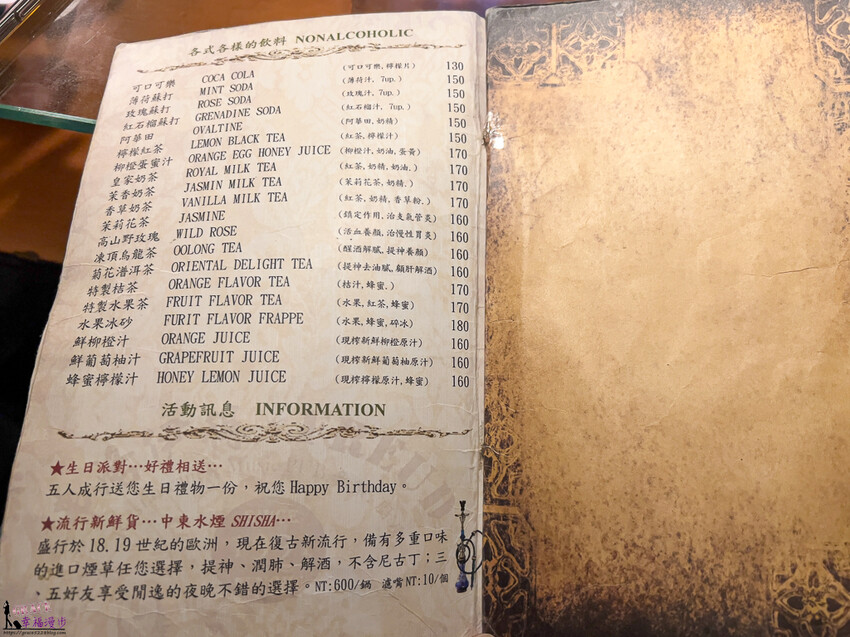 各式各樣的飲料 NONALCOHOLIC
可口可樂 COCA COLA (可口可樂,檸檬片) 130
薄荷蘇打 MINT SODA (薄荷汁, 7up.) 150
玫瑰蘇打 ROSE SODA (玫瑰汁, 7up.) 150
紅石榴蘇打 GRENADINE SODA (紅石榴汁, 7up.) 150
阿華田 OVALTINE (阿華田,奶精) 150
檸檬紅茶 LEMON BLACK TEA (紅茶,檸檬汁) 150
柳橙蛋蜜汁 ORANGE EGG HONEY JUICE (柳橙汁,奶油,蛋黃) 170
皇家奶茶 ROYAL MILK TEA (紅茶,奶精,奶油.) 170
茉香奶茶 JASMIN MILK TEA (茉莉花茶,奶精.) 170
香草奶茶 VANILLA MILK TEA (紅茶,奶精,香草粉.) 170
茉莉花茶 JASMINE (鎮定作用,治支氣管炎) 160
高山野玫瑰 WILD ROSE (活血養顏,治慢性胃炎) 160
凍頂烏龍茶 OOLONG TEA (醒酒解膩,提神養顏) 160
菊花潽洱茶 ORIENTAL DELIGHT TEA (提神去油膩,顧肝解酒) 160
特製桔茶 ORANGE FLAVOR TEA (桔汁,蜂蜜.) 170
特製水果茶 FRUIT FLAVOR TEA (水果,紅茶,蜂蜜) 170
水果冰砂 FURIT FLAVOR FRAPPE (水果,蜂蜜,碎冰) 180
鮮柳橙汁 ORANGE JUICE (現榨新鮮柳橙原汁) 160
鮮葡萄柚汁 GRAPEFRUIT JUICE (現榨新鮮葡萄柚原汁) 160
蜂蜜檸檬汁 HONEY LEMON JUICE (現榨檸檬原汁,蜂蜜) 160
活動訊息 INFORMATION
★生日派對…好禮相送…
五人成行送您生日禮物一份，祝您Happy Birthday。
★流行新鮮貨…中東水煙 SHISHA…
盛行於18.19世紀的歐洲，現在復古新流行，備有多重口味
的進口煙草任您選擇，提神、潤肺、解酒，不含尼古丁；三
、五好友享受閒逸的夜晚不錯的選擇。NT:600/鍋 濾嘴NT:10/個
幸福漫步